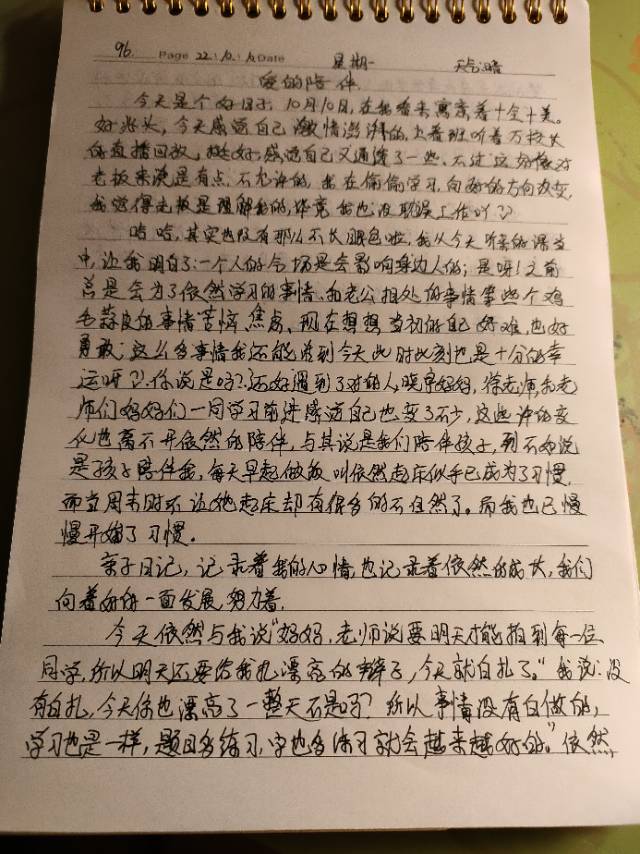 96. Page 22.10.10 Date 星期一 天气:晴
爱的陪伴.
今天是个好日子, 10月10日, 在我看来寓意着十全十美。
好兆头, 今天感觉自己激情澎湃的, 上着班听着万校长
的直播回放, 挺好, 感觉自己又通透了一些, 不过这好像对
老板来说是有点, 不允许的, 我在偷偷学习, 向好的方向改变,
我觉得老板是理解我的, 毕竟我也没耽误工作吖??
哈哈, 其实也没有那么不长眼色啦, 我从今天所学的课当
中, 让我明白了: 一个人的气场是会影响身边人的; 是呀! 之前
总是会为了依然学习的事情, 和老公相处的事情拿些个鸡
毛蒜皮的事情苦恼, 焦虑, 现在想想当初的自己好难, 也好
勇敢; 这么多事情我还能走到今天此时此刻也是十分的幸
运呀?! 你说是吗? 还好遇到了对的人, 晓宇妈妈, 徐老师, 和老
师们妈妈们一同学习前进感觉自己也变了不少, 这些许的变
化也离不开依然的陪伴, 与其说是我们陪伴孩子, 到不如说
是孩子陪伴我, 每天早起做饭叫依然起床似乎已成为了习惯,
而当周末时不让她起床却有很多的不自然了。而我也已慢
慢开始了习惯。
亲子日记, 记录着我的心情, 也记录着依然的成长, 我们
向着好的一面发展, 努力着,
今天依然与我说“妈妈, 老师说要明天才能拍到每一位
同学, 所以明天还要给我扎漂亮的辫子, 今天就白扎了。”我说: 没
有白扎, 今天你也漂亮了一整天不是吗? 所以事情没有白做的,
学习也是一样, 题目多练习, 字也多练习就会越来越好的。”依然,